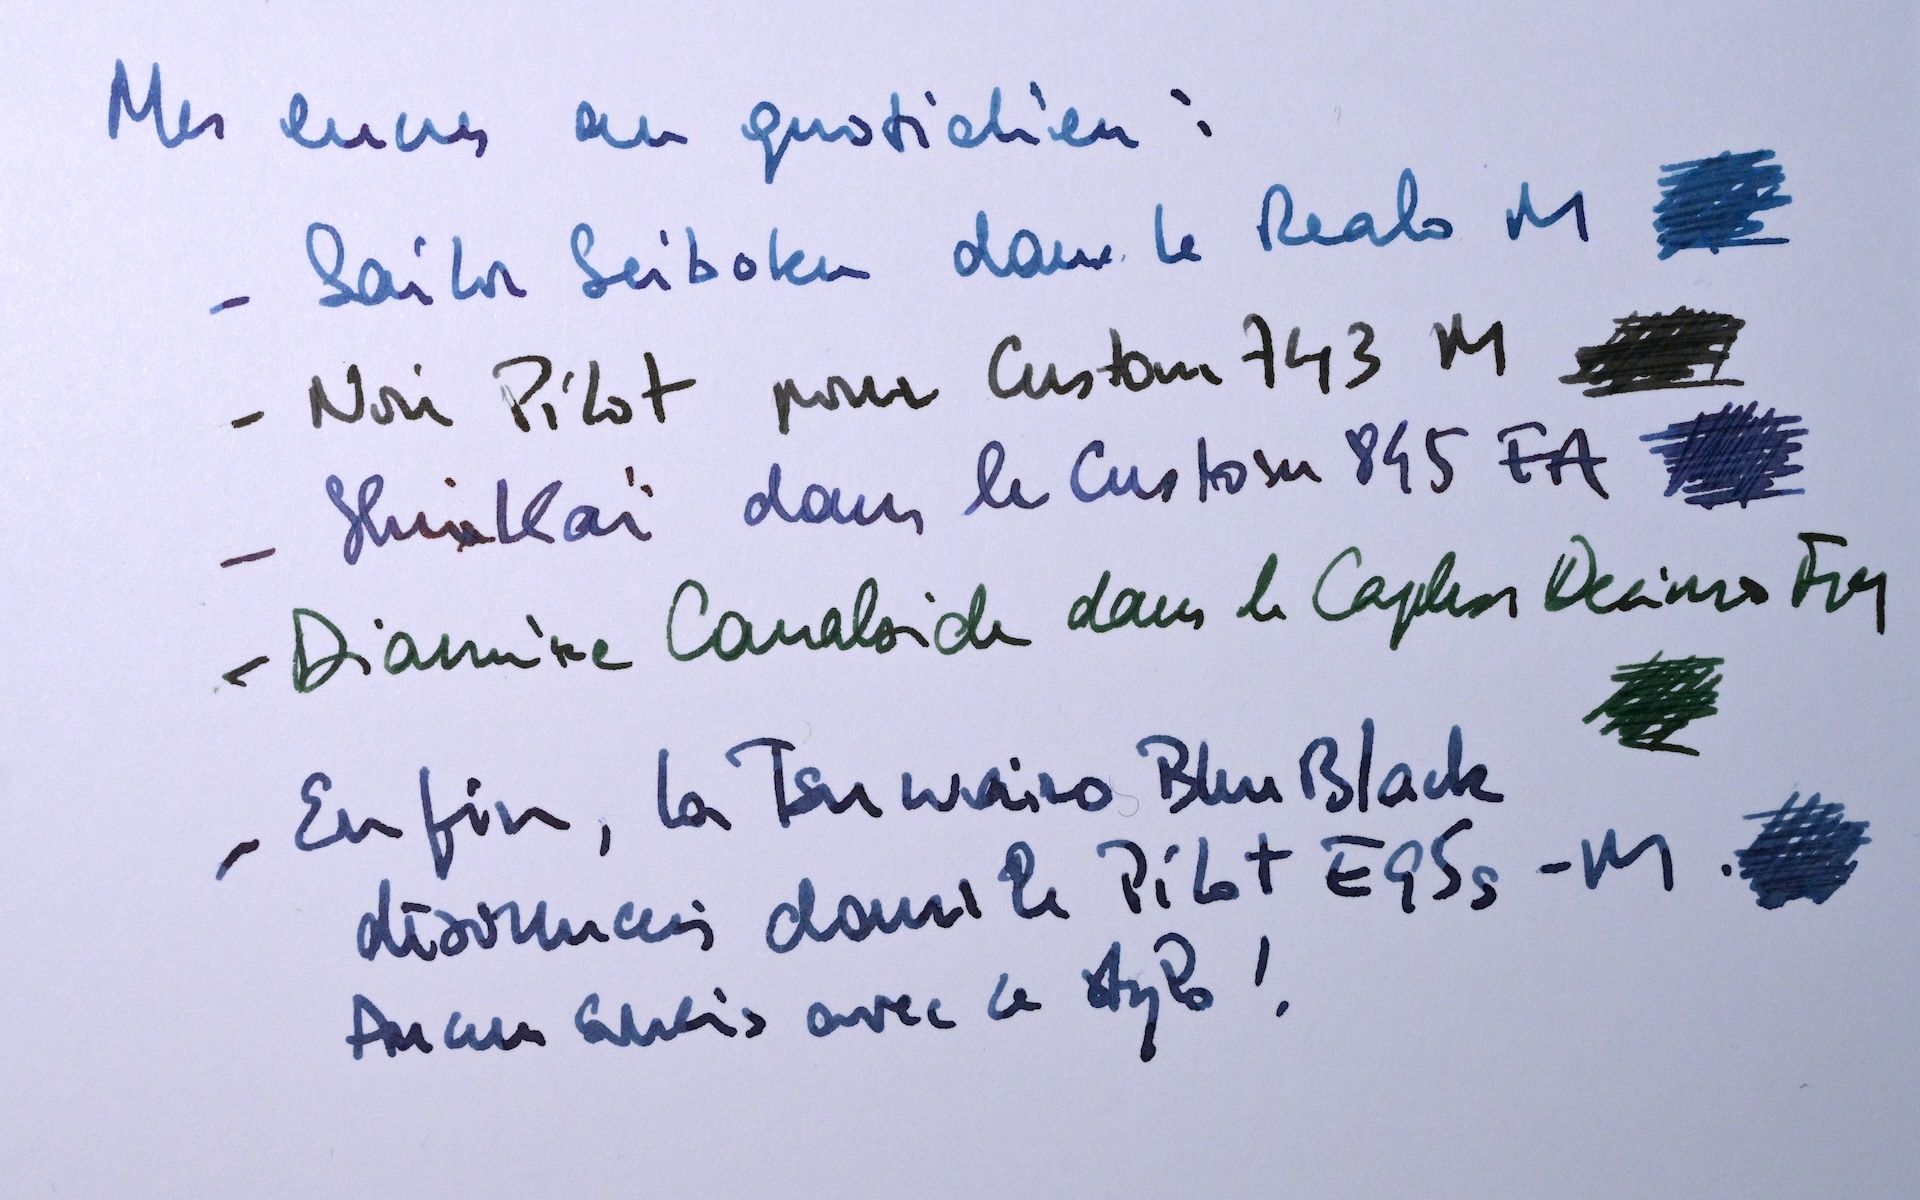 Mes encres au quotidien :
- Sailor Seiboku dans le Realo M
- Noir Pilot pour Custom 743 M
- Shinkaï dans le Custom 845 FA
- Diamine dans le Capless Decimo
- Enfin, la Tsuwairo Blue Black
désormais dans le Pilot E95s - M.
Aucun soucis avec ce stylo !